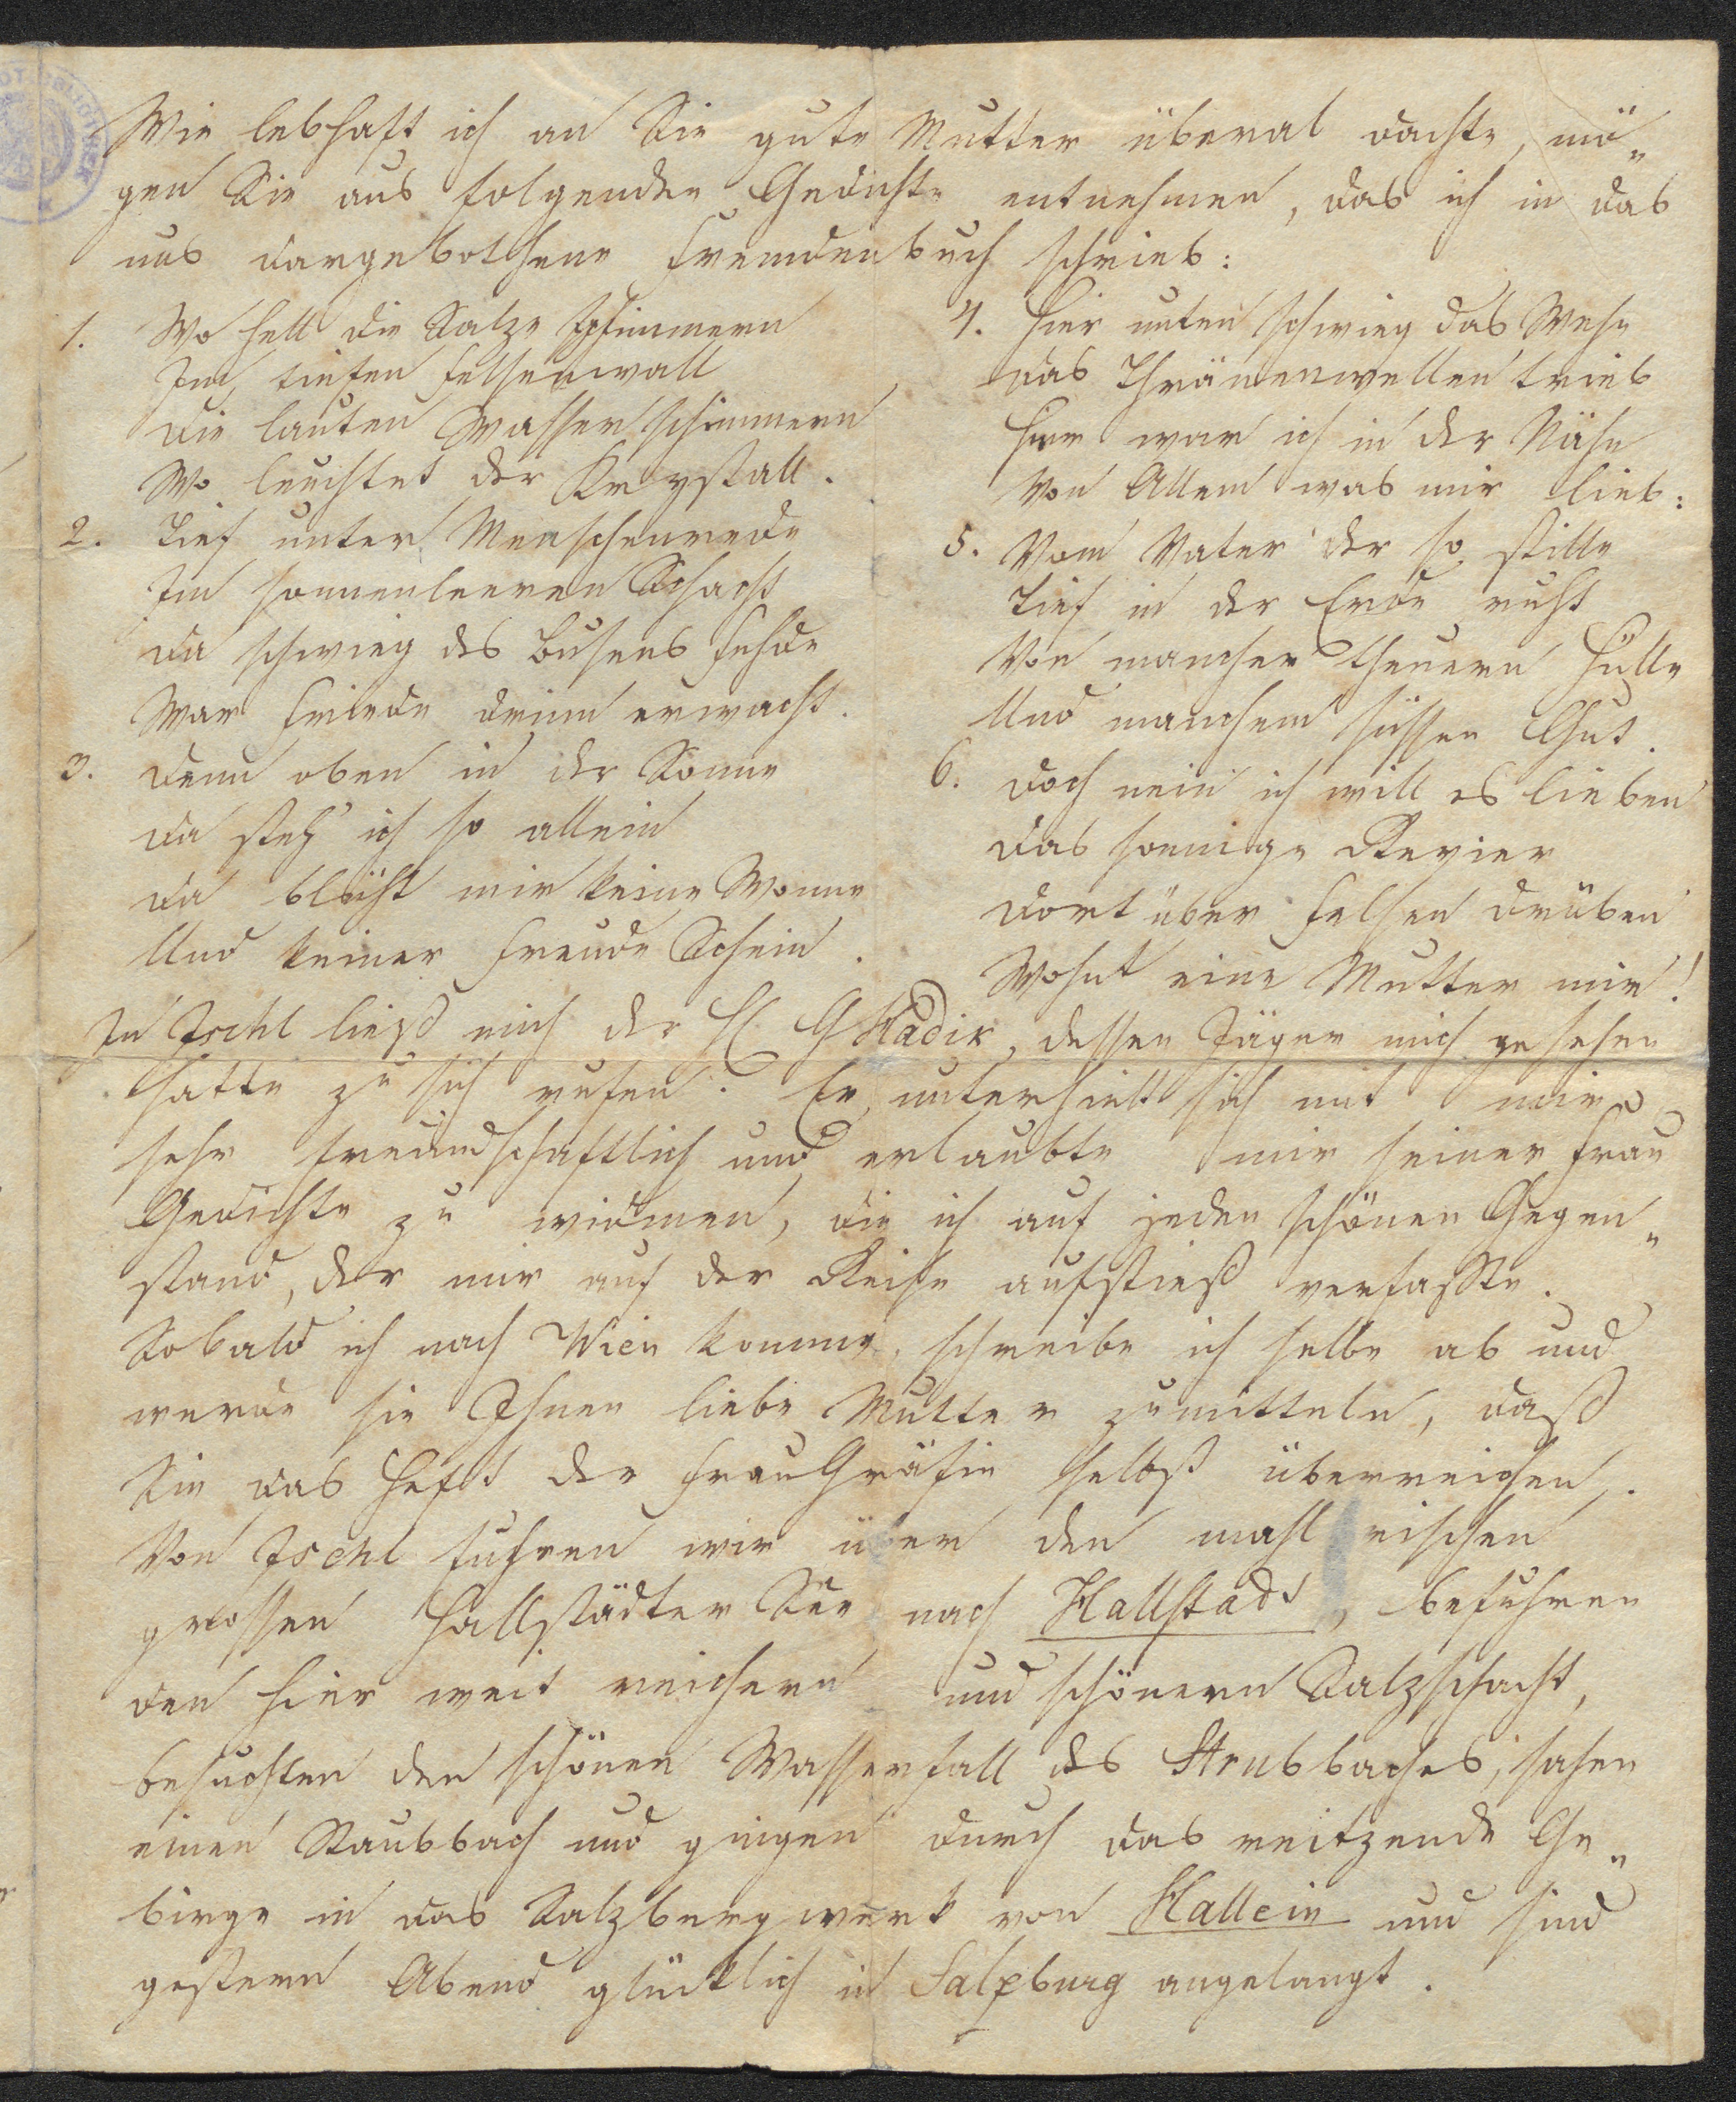 Wie lebhaft ich an Sie gute Mutter überal dachte, mö„
gen Sie aus folgenden Gedichte entnehmen, das ich in das
uns dargebothene Fremdenbuch schrieb:
1. Wo hell die Salze flimmern
Im tiefen Felsenwall
Die lauten Wasser schimmern
Wo leuchtet der Krystall.
2. Tief unter Menschenrede
Im sonnenleeren Schacht
Da schwieg des Busens Fehde
War Friede drinn erwacht.
3. Denn oben in der Sonne
Da steh' ich so allein
Da blüht mir keine Wonne
Und keiner Freude Schein.
4. Hier unten schwieg das Wehe
Das Thränenwellen trieb
Hier war ich in der Nähe
Von Allem was mir lieb:
5. Vom Vater der so stille
Tief in der Erde ruht
Von mancher theuern Hülle
Und manchem süssen Gut.
6. Doch nein ich will es lieben
Das sonnige Revier
Dort über Felsen drüben
Wohnt eine Mutter mir!
In Ischl ließ mich der H G Hadik, dessen Jäger mich gesehen
hatte zu sich rufen. Er unterhielt sich mit mir
sehr freundschaftlich und erlaubte mir seiner Frau
Gedichte zu widmen, die ich auf jeden schönen Gegen„
stand, der mir auf der Reise aufstieß verfaßte.
Sobald ich nach Wien komme, schreibe ich selbe ab und
werde sie Ihnen liebe Mutter zumitteln, daß
Sie das Heft der Frau Gräfin selbst überreichen.
Von Ischl fuhren wir über den mahlerischen
grossen Hallstädter See nach Hallstadt, befuhren
den hier weit reichern und schönern Salzschacht,
besuchten den schönen Wasserfall des Strubbaches, sahen
einen Staubbach und gingen durch das reitzende Ge„
birge in das Salzbergwerk von Hallein und sind
gestern Abend glücklich in Salzburg angelangt.